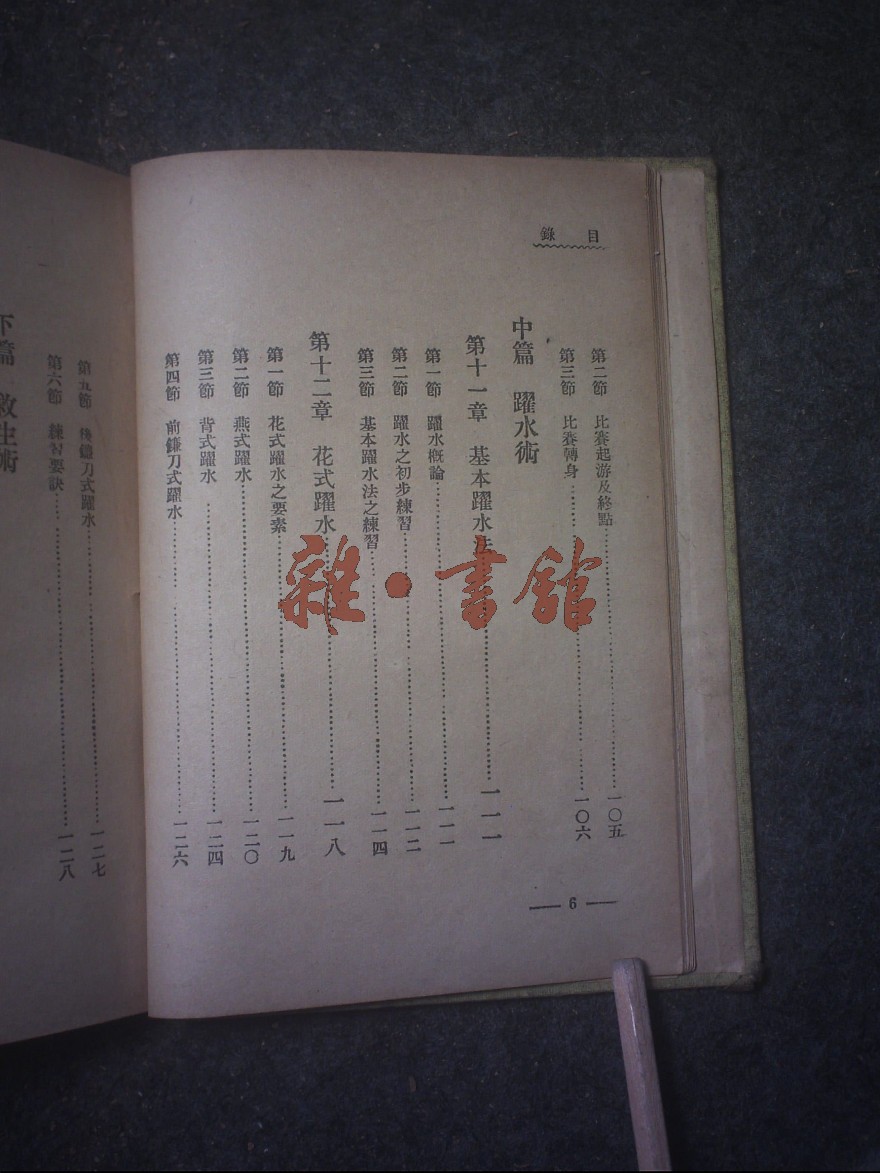 目錄
第二節 比賽起游及終點……一〇五
第三節 比賽轉身……一〇六
中篇 躍水術
第十一章 基本躍水法……一一一
第一節 躍水概論……一一一
第二節 躍水之初步練習……一一二
第三節 基本躍水法之練習……一一四
第十二章 花式躍水……一一八
第一節 花式躍水之要素……一一九
第二節 燕式躍水……一二〇
第三節 背式躍水……一二四
第四節 前鐮刀式躍水……一二六
— 6 —
第五節 後鐮刀式躍水……一二七
第六節 練習要訣……一二八
下篇 救生術
雜·書館